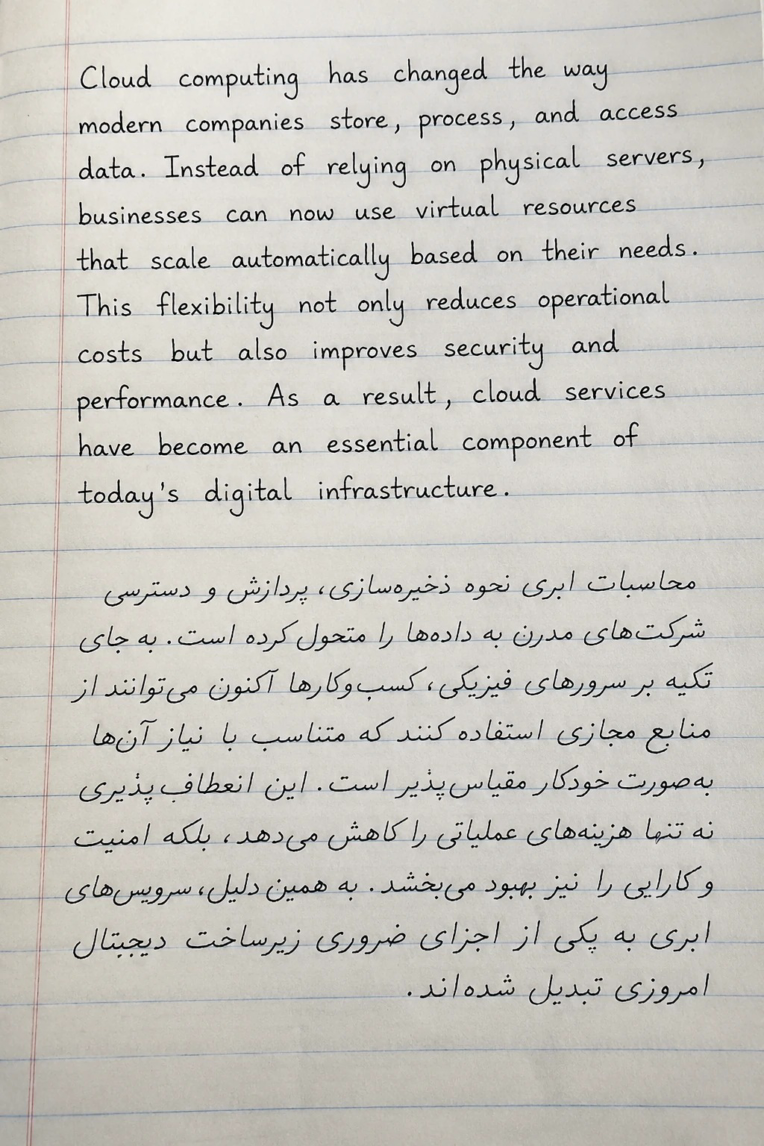 Cloud computing has changed the way
modern companies store, process, and access
data. Instead of relying on physical servers,
businesses can now use virtual resources
that scale automatically based on their needs.
This flexibility not only reduces operational
costs but also improves security and
performance. As a result, cloud services
have become an essential component of
today's digital infrastructure.
محاسبات ابری نحوه ذخیره‌سازی، پردازش و دسترسی
شرکت‌های مدرن به داده‌ها را متحول کرده است. به جای
تکیه بر سرورهای فیزیکی، کسب‌وکارها آکنون می‌توانند از
منابع مجازی استفاده کنند که متناسب با نیاز آن‌ها
به‌صورت خودکار مقیاس‌پذیر است. این انعطاف‌پذیری
نه تنها هزینه‌های عملیاتی را کاهش می‌دهد، بلکه امنیت
و کارایی را نیز بهبود می‌بخشد. به همین دلیل، سرویس‌های
ابری به یکی از اجزای ضروری زیرساخت دیجیتال
امروزی تبدیل شده‌اند.